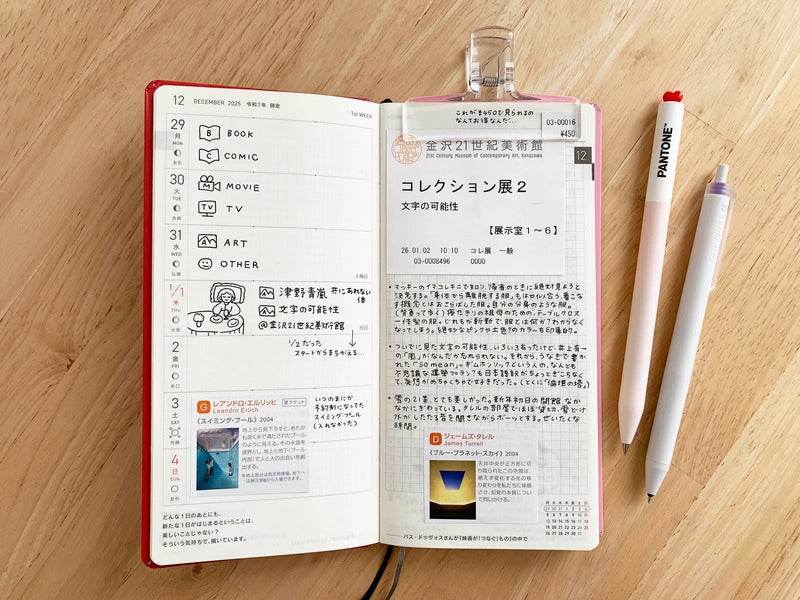 12 DECEMBER 2025 令和7年 師走
1st WEEK
29
月
MON
友引
BOOK
COMIC
30
火
TUE
先負
MOVIE
TV
31
水
WED
仏滅
ART
OTHER
大晦日
1/1
木
THU
大安
津野青嵐 共にあれない体
文字の可能性
@金沢21世紀美術館
元日
1/2だった
スタートからまちがえ…
2
金
FRI
赤口
3
土
SAT
先勝
4
日
SUN
友引
G レアンドロ・エルリッヒ
Leandro Erlich
要チケット
《スイミング・プール》2004
地上から見下ろすと、あたか
も深く水で満たされたプール
のように見える。その水面を
境界とし、地上と地下(プール
内部)で人と人の出会いを創
出する。
いつのまにか
予約制になってた
スイミング・プール
(入れなかった)
どんな1日のあとにも、
新たな1日がはじまるということは、
美しいことじゃない?
そういう気持ちで、描いています。
これが¥450で見られるの
なんてお得なんだ…
03-00016
¥450
金沢21世紀美術館
21st Century Museum of Contemporary Art, Kanazawa
12
コレクション展2
文字の可能性
【展示室1〜6】
26.01.02 10:10 コレ展 一般
03-0008496 0000
・マッキーのイマコレキニで知り、帰省のときに絶対見ようと
決意する。「身体から離脱する服」もはや似合う、着こな
す概念とはおさらばした服。自分の分身のような服。
(背負って歩く)寝たきりの祖母のための、テーブルクロス
一体型の服。どれもが斬新で、服とは何か?わからなく
なってしまう。絶妙なピンクや土色?のカラーも印象的。
・ついでに見た文字の可能性、いろいろあったけど、井上有一
の「風」がなんだか忘れられない。それから、うなぎで書か
れた「so mean」。ギムホンソックという人の、なんとも
不思議な建築プラン?も日本語訳がちょっとぎこちなく
て、発想がめちゃくちゃで好きだった。(とくに「倫理の塔」)
・雪の21美、とても美しかった。新年初日の開館、なか
なかにぎわっている。タレルの部屋でほぼ貸切、雪どけ
水がしたたる音を聞きながらボーッとする。ぜいたくな
時間。
D ジェームズ・タレル
James Turrell
《ブルー・プラネット・スカイ》2004
天井中央が正方形に切
り取られたこの空間は、
絶えず変化する光の移
り変わりを私たちに体感
させ、知覚の本質につい
て問いかける。
── バス・ドゥヴォスさんが「映画が『つなぐ』もの」の中で
PANTONE™